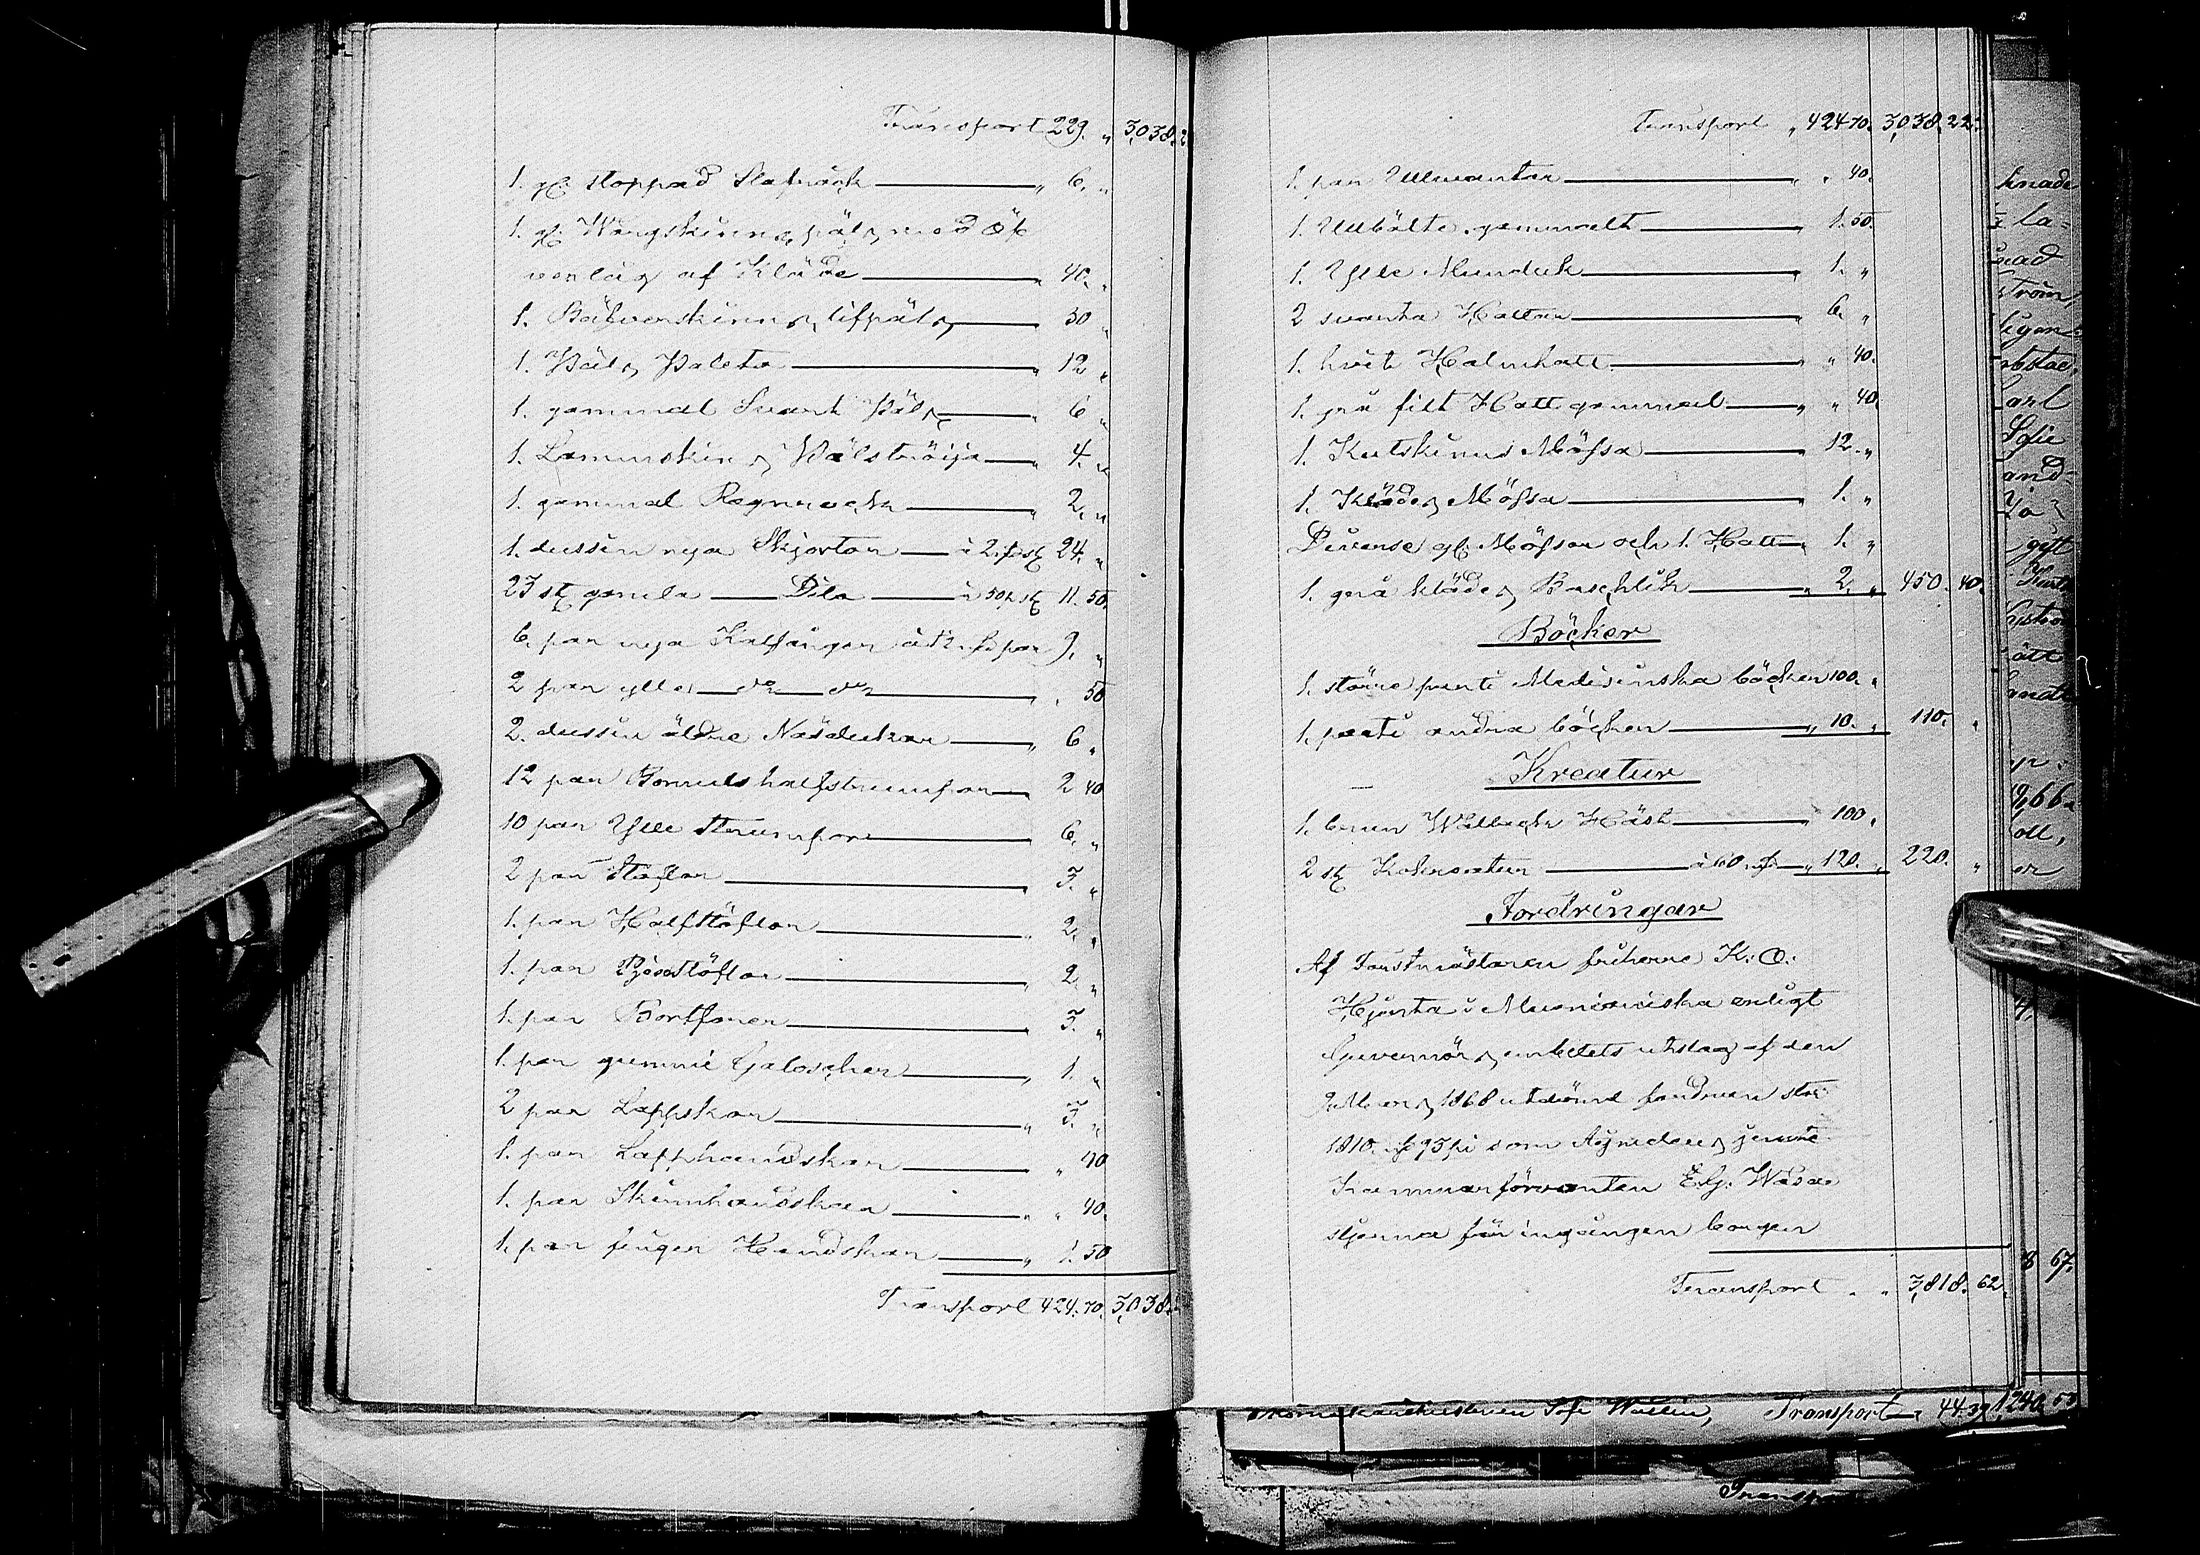 Transport 229. „ 3,038.2
1. gl. stoppad Slafråck „ 6. „
1. gl. Wargskinns päls med öf-
verlag af Kläde „ 40. „
1. Bäfverskinns lifpäls 30 „
1. Päls Paleto „ 12 „
1. gammal Svart Päls „ 6 „
1. Lammskins Pälströija „ 4. „
1. gammal Regnrock „ 2. „
1. dussin nya Skjortor à 2. f. st 24. „
23 st gamla Dito à 50 p st 11. 50.
6. par nya Kalsånger par 9. „
2 par ylle do do „ 50
2. dussin äldre Näsdukar „ 6 „
12 par Bomulls halfstrumpor „ 2 40
10 par Ylle strumpor „ 6. „
2 par Stöflar „ 3. „
1. par Halfstöflar „ 2. „
1. par Pjexstöflar „ 2. „
1. par Bottforer „ 3. „
1. par gummi Galoscher „ 1. „
2 par Lappskor „ 3. „
1. par Lapphandskar „ 40
1. par Skinnhandskar „ „ 40.
1. par finger Handskar „ 1. 50
Transport 424. 70. 3,038.2
Transport „ 424 70. 3,038. 22.
1. par Ullvantar „ „ 40.
1. Ullbälte gammalt „ 1. 50.
1. Ylle Munduk „ 1. „
2 svarta Hattar „ 6. „
1. hvit Halmhatt „ „ 40.
1. grå filt Hatt gammal „ „ 40.
1. Kutskinns Mössa „ 12. „
1. Klädes Mössa „ 1. „
Diverse gl. Mössor och 1. Hatt „ 1. „
1. grå klädes Baschlik „ 2. „ 450. 40.
Böcker
1. större parti Medisinska böcker 100. „
1. parti andra böcker „ 10. „ 110. „
Kreatur
1. brun Wallack Häst „ 100.
2 st Kokreatur à 60. f. „ 120. „ 220. „
Fordringar
Af Forstmästaren friherre K: O:
Hjerta i Muonioniska enligt
Guvernörs embetets utslag af den
1868 utdömd fordran stor
1810. f 95 pi som
Kammarförvanten E. G. Wasa-
stjerna för ingången borgen
Transport „ „ 3,818. 62.
knade
la=
nad
ström,
ligen
Carl
Sofie
and=
gift
66.
8 67.
Sofi Wallin, Transport 44.39 1,240. 53
Transport